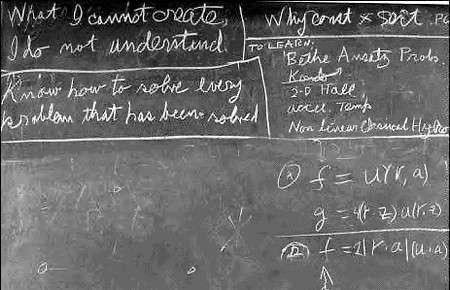 What I cannot create,
I do not understand.
Know how to solve every
problem that has been solved
Why const × sort . PG
TO LEARN:
Bethe Ansatz Probs.
Kondo
2-D Hall
accel. Temp
Non Linear Classical Hydro
Ⓐ f = u(r, a)
g = 4(r·z) u(r, z)
f = 2|r·a|(u·a)